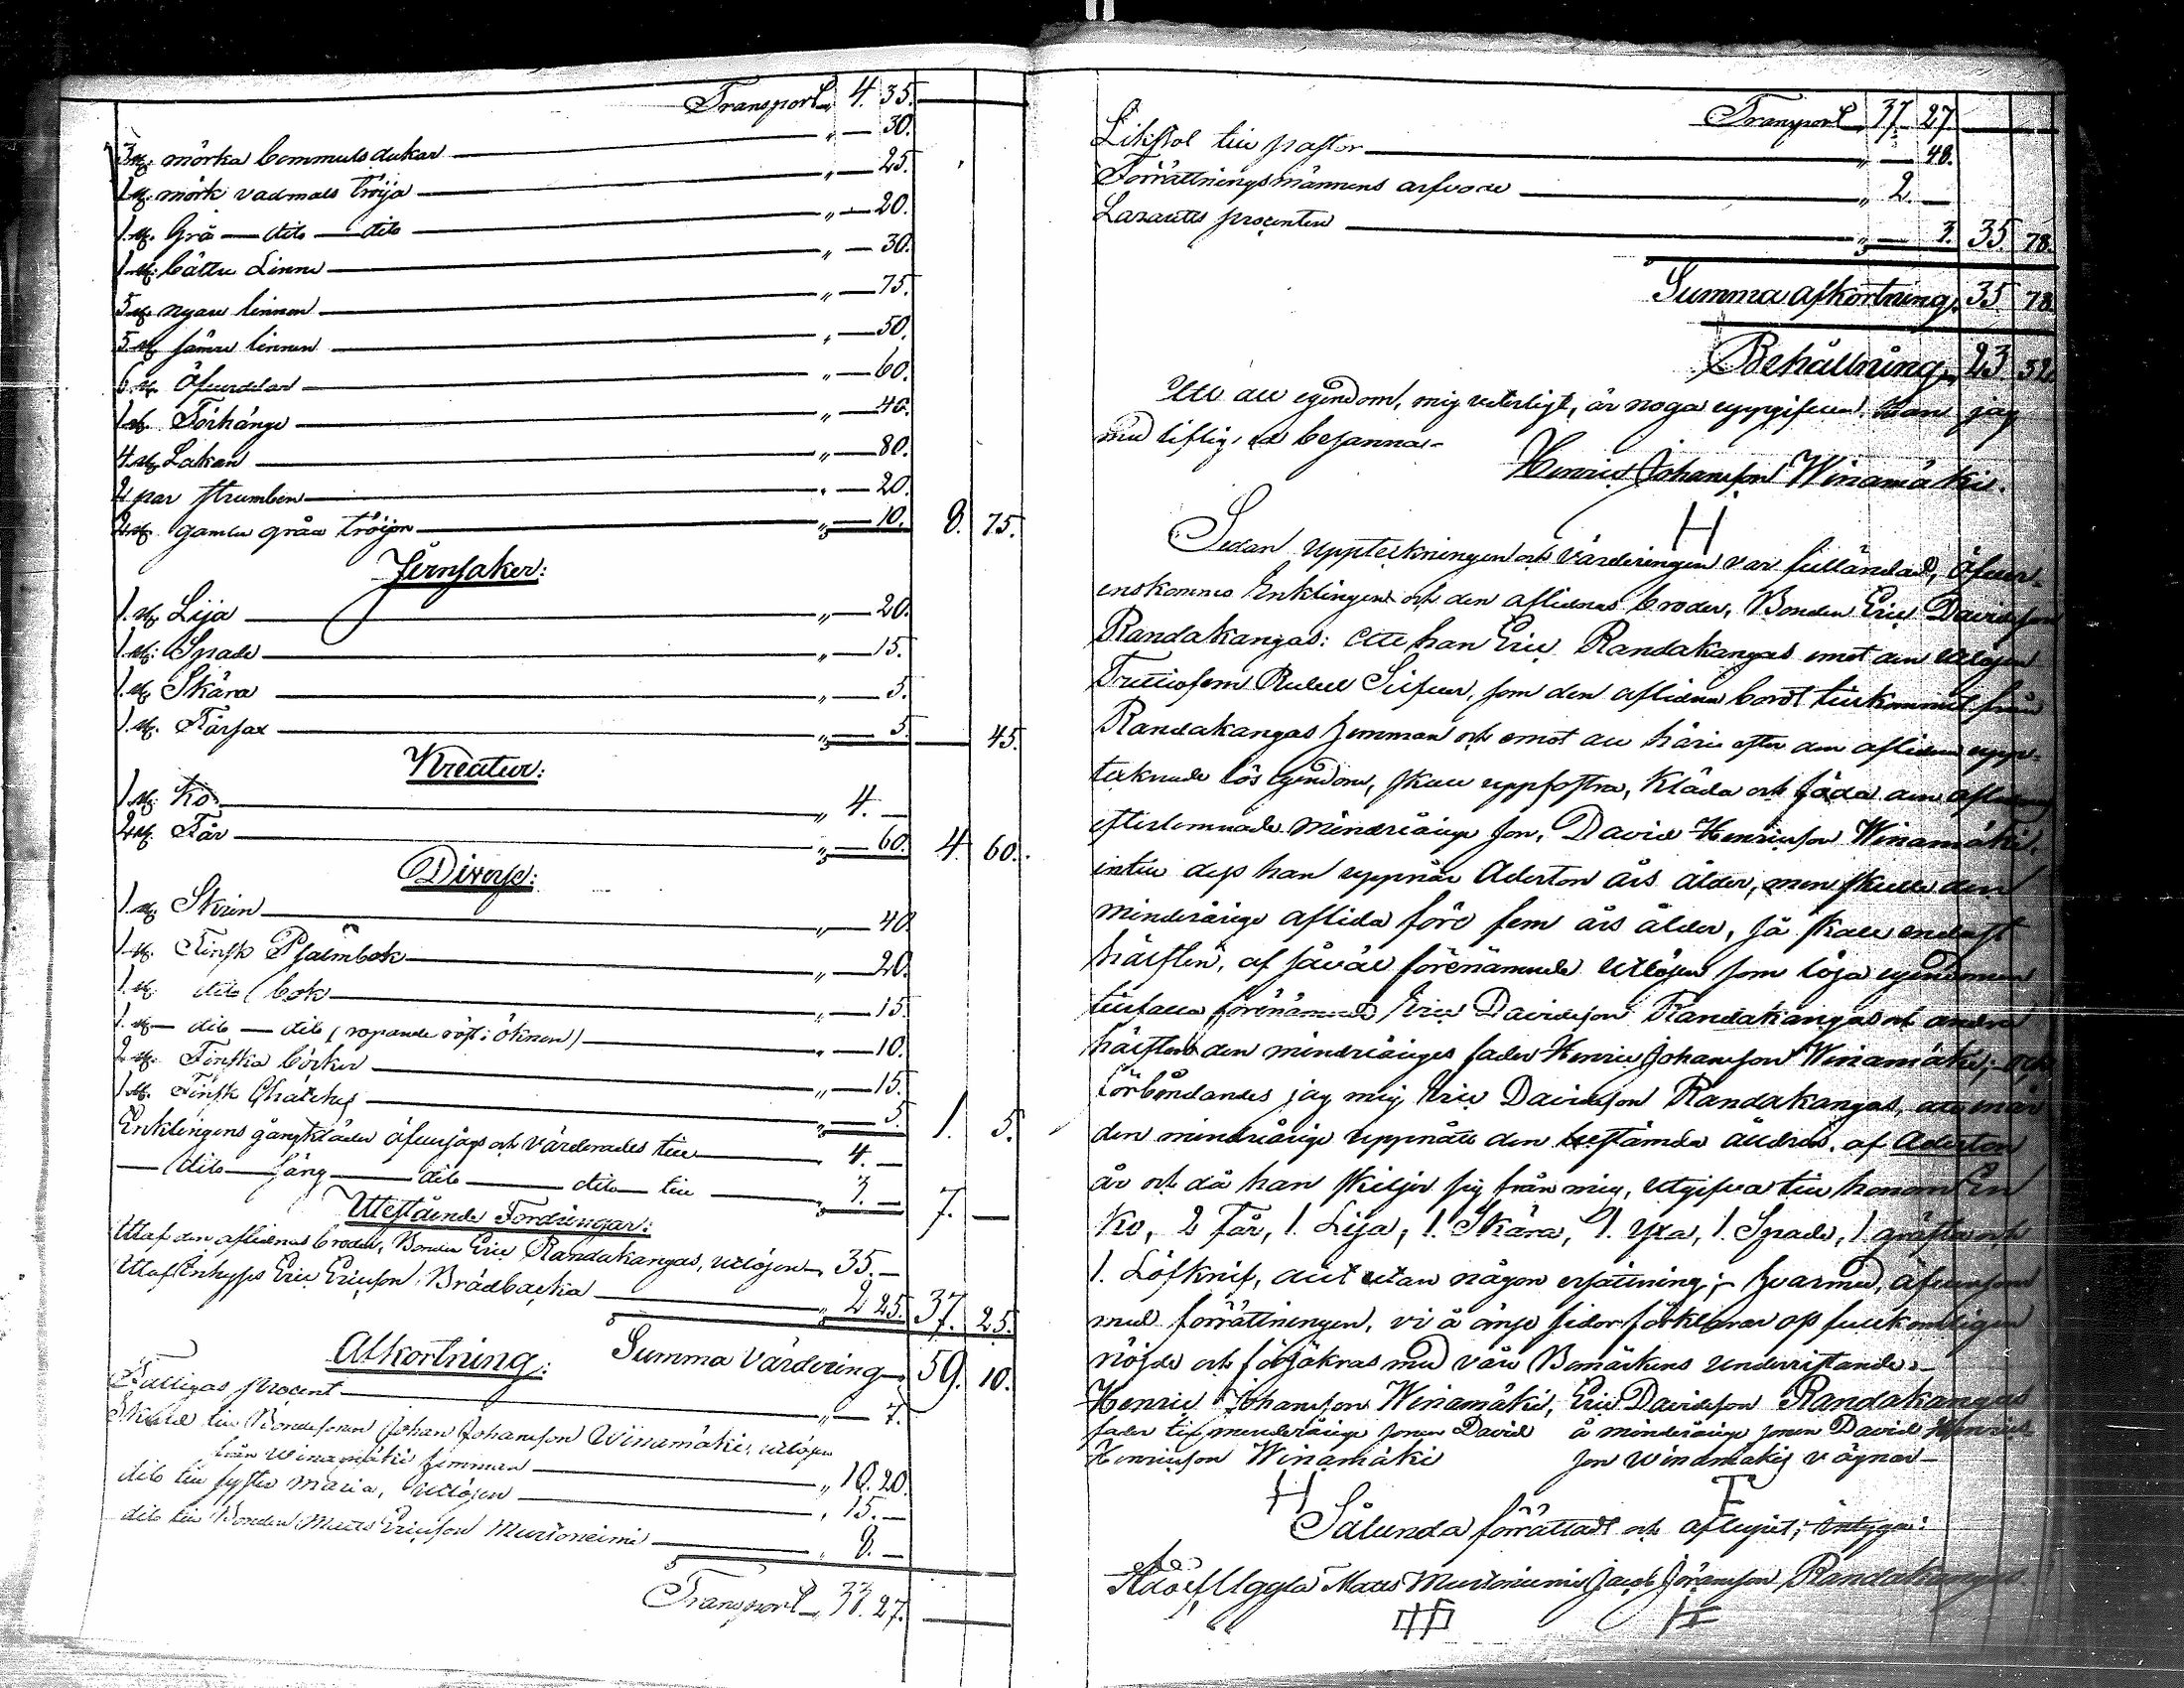 Transport „ 4. 35.
3 st. mörka bommulsdukar „ — 30.
1 st. mörk vadmals tröija „ — 25.
1. st. Grå — dito — dito „ — 20.
1 st. bättre Linne „ — 30.
5 st. nyare linnen „ — 75.
5. st. sämre linnen „ — 50.
6 st. Öfverdelar „ — 60.
1 st. Förhänge „ — 40.
4 st. Lakan „ — 80.
2 par strumbor „ — 20.
2 st. gamla gråa tröijor „ — 10. 8. 75.
Jernsaker:
1. st. Lija „ — 20.
1. st. Spade „ — 15.
1. st. Skära „ — 5.
1. st. Fårsax „ — 5. — 45.
Kreatur:
1 st. Ko „ 4. —
2 st. Får „ — 60. 4. 60.
Diverse:
1. st. Skrin „ — 40
1. st. Finsk Psalmbok „ — 20.
1. st. dito bok „ — 15.
1. st. — dito — dito (ropande röst i öknen) „ — 10.
2 st. Finska böcker „ — 15.
1 st. Finsk Chateches „ — 5. 1. 5.
Enklingens gångkläder öfversågs och värderades till 4. —
— dito — säng — dito — dito — till „ 3. — 7. —
Utestående Fordringar:
Utaf den aflidnas broder, Bonden Eric Randakangas, utlösen „ 35. —
Utaf Inhyses Eric Ericsson Brädbacka „ 2 25. 37. 25.
Summa Värdering „ 59. 10.
Afkortning:
Fattigas procent „ — 7.
Skuld till Bondesonen Johan Johansson Winamäki, utlösen
från Winamäki hemman „ 10. 20.
dito till syster Maria, utlösen „ 15. —
dito till Bonden Matts Ericsson Murtoneimi „ 8. —
Transport „ 33. 27.
Transport „ 33 27
Likstol till pastor „ — 48.
Förrättningsmännens arfvode „ 2. —
Lazaretts procenten „ — 3. 35. 78.
Summa afkortning „ 35. 78
Behållning „ 23 32
Att all egendom, mig veterligt, är noga uppgifven, kan jag
med liflig ed besanna.
Henric Johansson Winamäki.
H
Sedan uppteckningen och Värderingen var fulländad, öfver-
enskommo Enklingen och den aflidnas broder, Bonden Eric Davidsson
Randakangas: att han Eric Randakangas emot den utlösen
Trettiofem Rubel Silfver, som den aflidna bordt tillkommit från
Randakangas hemman och emot all härii efter den aflidna upp-
tecknade lös egendom, skall uppfostra, kläda och föda den aflidnas
efterlemnade minderårige son, David Henricsson Winamäki,
intill dess han uppnår Aderton års ålder, men skulle den
minderårige aflida före fem års ålder, så skall endast
hälften, af såväl förenämnde utlösen som lösa egendomen
tillfalla förenämnde Eric Davidsson Randakangas och andra
hälften den minderåriges fader Henric Johansson Winamäki; och
förbindandes jag mig Eric Davidsson Randakangas, att när
den minderårige uppnått den bestämda åldren, af Aderton
år och då han skiljer sig från mig, utgifva till honom En
Ko, 2 Får, 1. Lija, 1. Skära, 1. yxa, 1. Spade, 1 gräfta och
1. Löfknif, allt utan någon ersättning; – hvarmed, äfvensom
med förrättningen, vi å ömse sidor förklarar oss fullkomligen
nöjde och försäkras med våre Bomärkens underristande. –
Henric Johansson Winamäki, Eric Davidsson Randakangas
fader till minderårige sonen David å minderårige sonen David Henrics
Henricsson Winamäki son Winamäkis vägnar –
H F
Sålunda förrättadt och aflupit; intyga:
Adolf Uggla Matts Murtoniemi Jacob Jöransson Randakangas